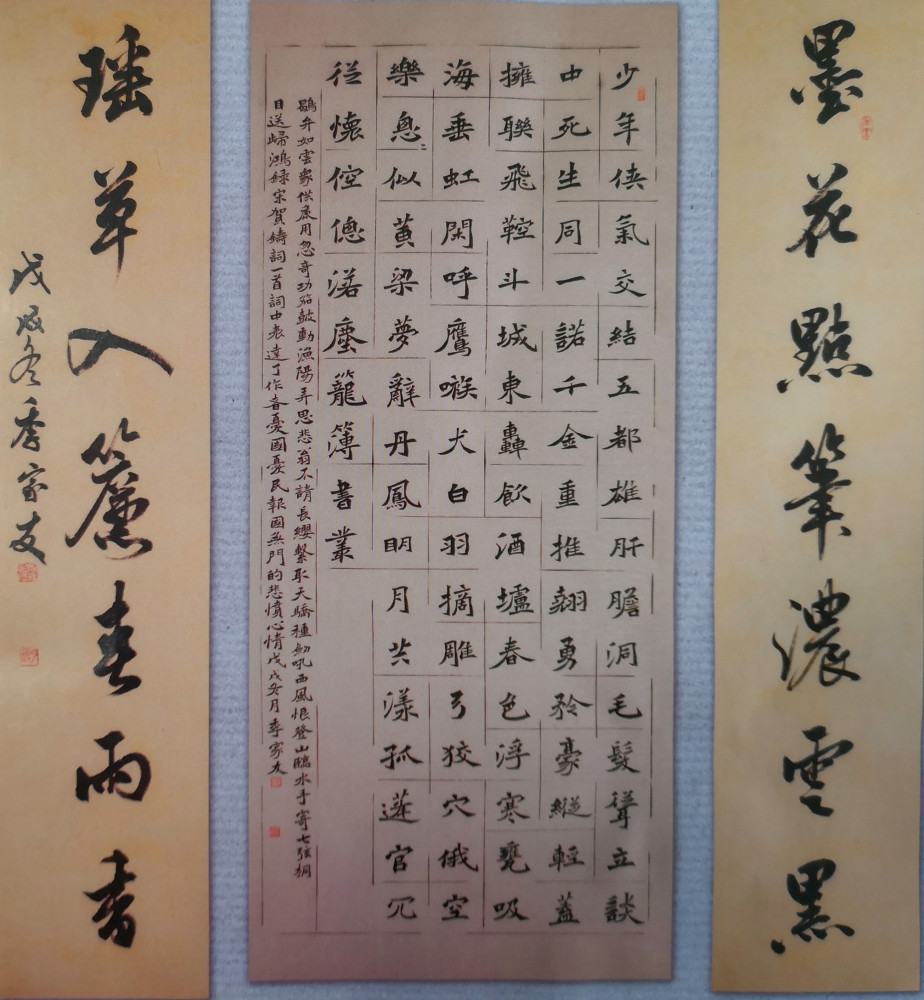 墨花點筆濃雲黑
少年俠氣交結五都雄肝膽洞毛髮聳立談
中死生同一諾千金重推翹勇矜豪縱輕蓋
擁聯飛鞚斗城東轟飲酒壚春色浮寒甕吸
海垂虹閑呼鷹嗾犬白羽摘雕弓狡穴俄空
樂怱〻似黃梁夢辭丹鳳明月共漾孤蓬官冗
從懷倥傯落塵籠簿書叢
鶡弁如雲衆供麤用忽奇功笳鼓動漁陽弄思悲翁不請長纓繫取天驕種劍吼西風恨登山臨水手寄七弦桐
目送歸鴻錄宋賀鑄詞一首詞中表達了作者憂國憂民報國無門的悲憤心情戊戌冬月季家友
瑤草入簾春雨香
戊戌冬季家友